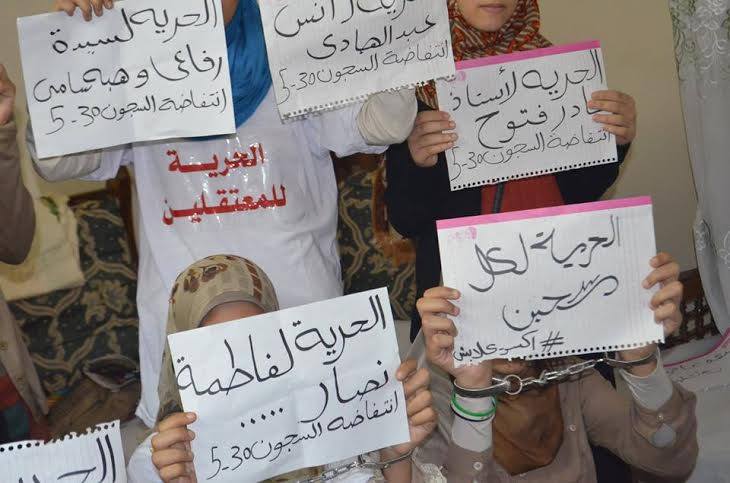 الحرية لسيدة
رفاعى وهبه سامى
انتفاضة السجون 30-5
الحرية لأنس
عبدالهادى
انتفاضة السجون 30-5
الحرية لأستاذ
نادر فتوح
انتفاضة السجون 30-5
الحرية
للمعتقلين
الحرية لكل
سجين
#اكسر_كلابش
الحرية لفاطمة
نصار .....
انتفاضة السجون 30-5
الحر